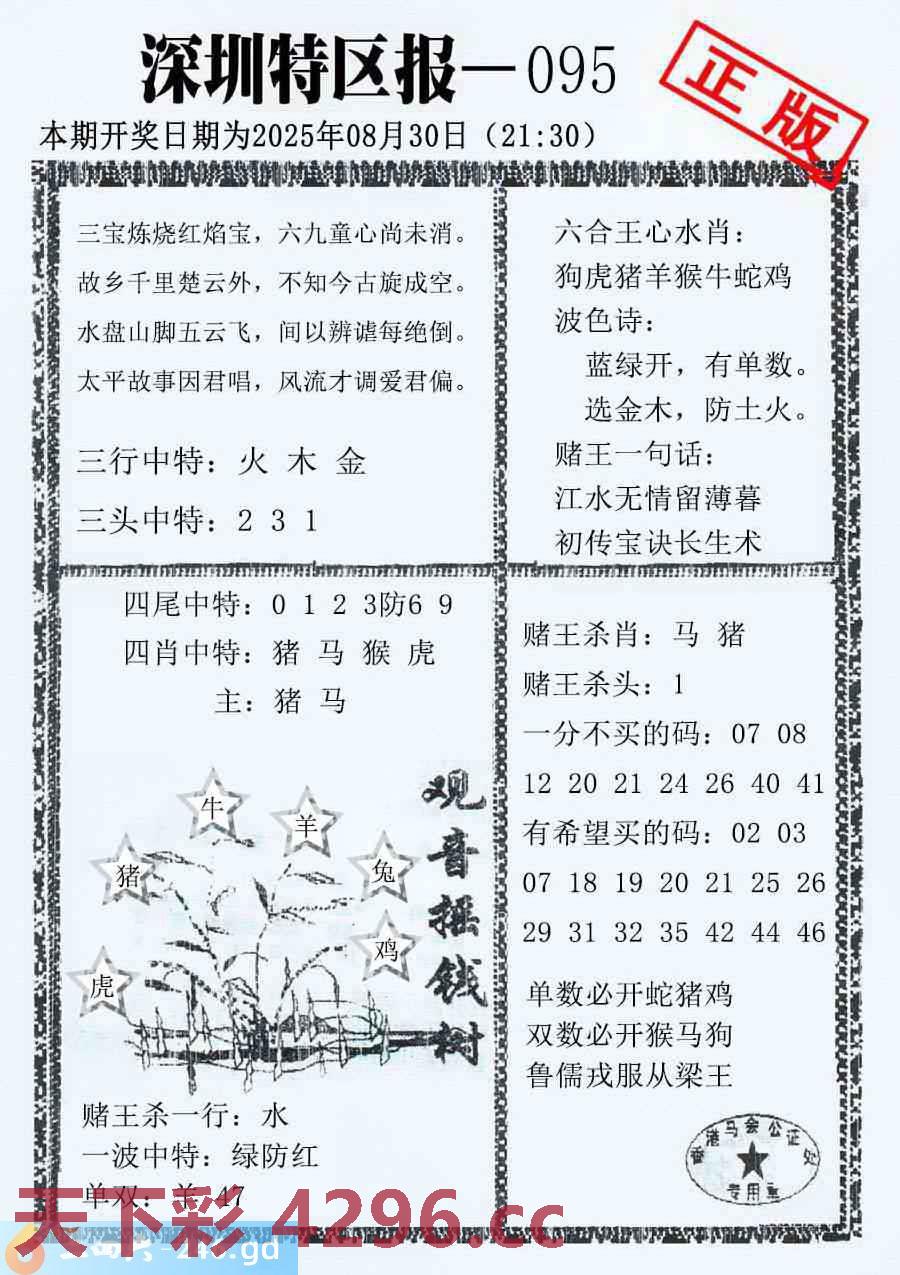 深圳特区报—095
正版
本期开奖日期为2025年08月30日（21:30）
三宝炼烧红焰宝，六九童心尚未消。
故乡千里楚云外，不知今古旋成空。
水盘山脚五云飞，间以辨谑每绝倒。
太平故事因君唱，风流才调爱君偏。
三行中特：火 木 金
三头中特：2 3 1
六合王心水肖：
狗虎猪羊猴牛蛇鸡
波色诗：
蓝绿开，有单数。
选金木，防土火。
赌王一句话：
江水无情留薄暮
初传宝诀长生术
四尾中特：0 1 2 3防6 9
四肖中特：猪 马 猴 虎
主：猪 马
观音摇钱树
牛
羊
猪
兔
鸡
虎
赌王杀一行：水
一波中特：绿防红
单双：羊 47
赌王杀肖：马 猪
赌王杀头：1
一分不买的码：07 08
12 20 21 24 26 40 41
有希望买的码：02 03
07 18 19 20 21 25 26
29 31 32 35 42 44 46
单数必开蛇猪鸡
双数必开猴马狗
鲁儒戎服从梁王
香港马会公证处
专用章
天下彩 4296.cc